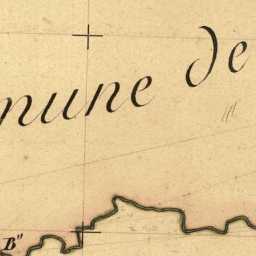 mune de
B"